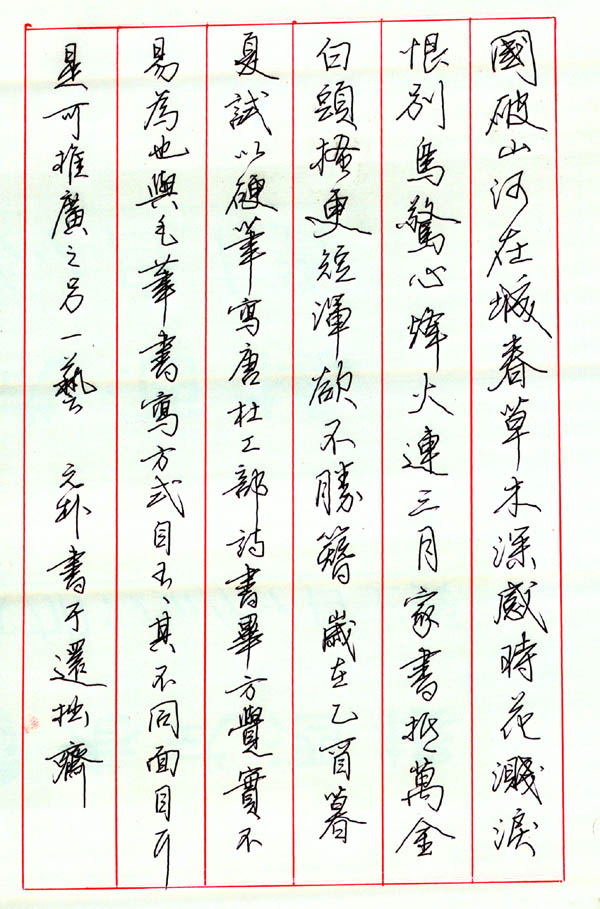 國破山河在城春草木深感時花濺淚
恨別鳥驚心烽火連三月家書抵萬金
白頭搔更短渾欲不勝簪 歲在乙酉暮
夏試以硬筆寫唐杜工部詩書畢方覺實不
易為也與毛筆書寫方式自有其不同面目
是可推廣之另一藝 元朴書于還拙齋